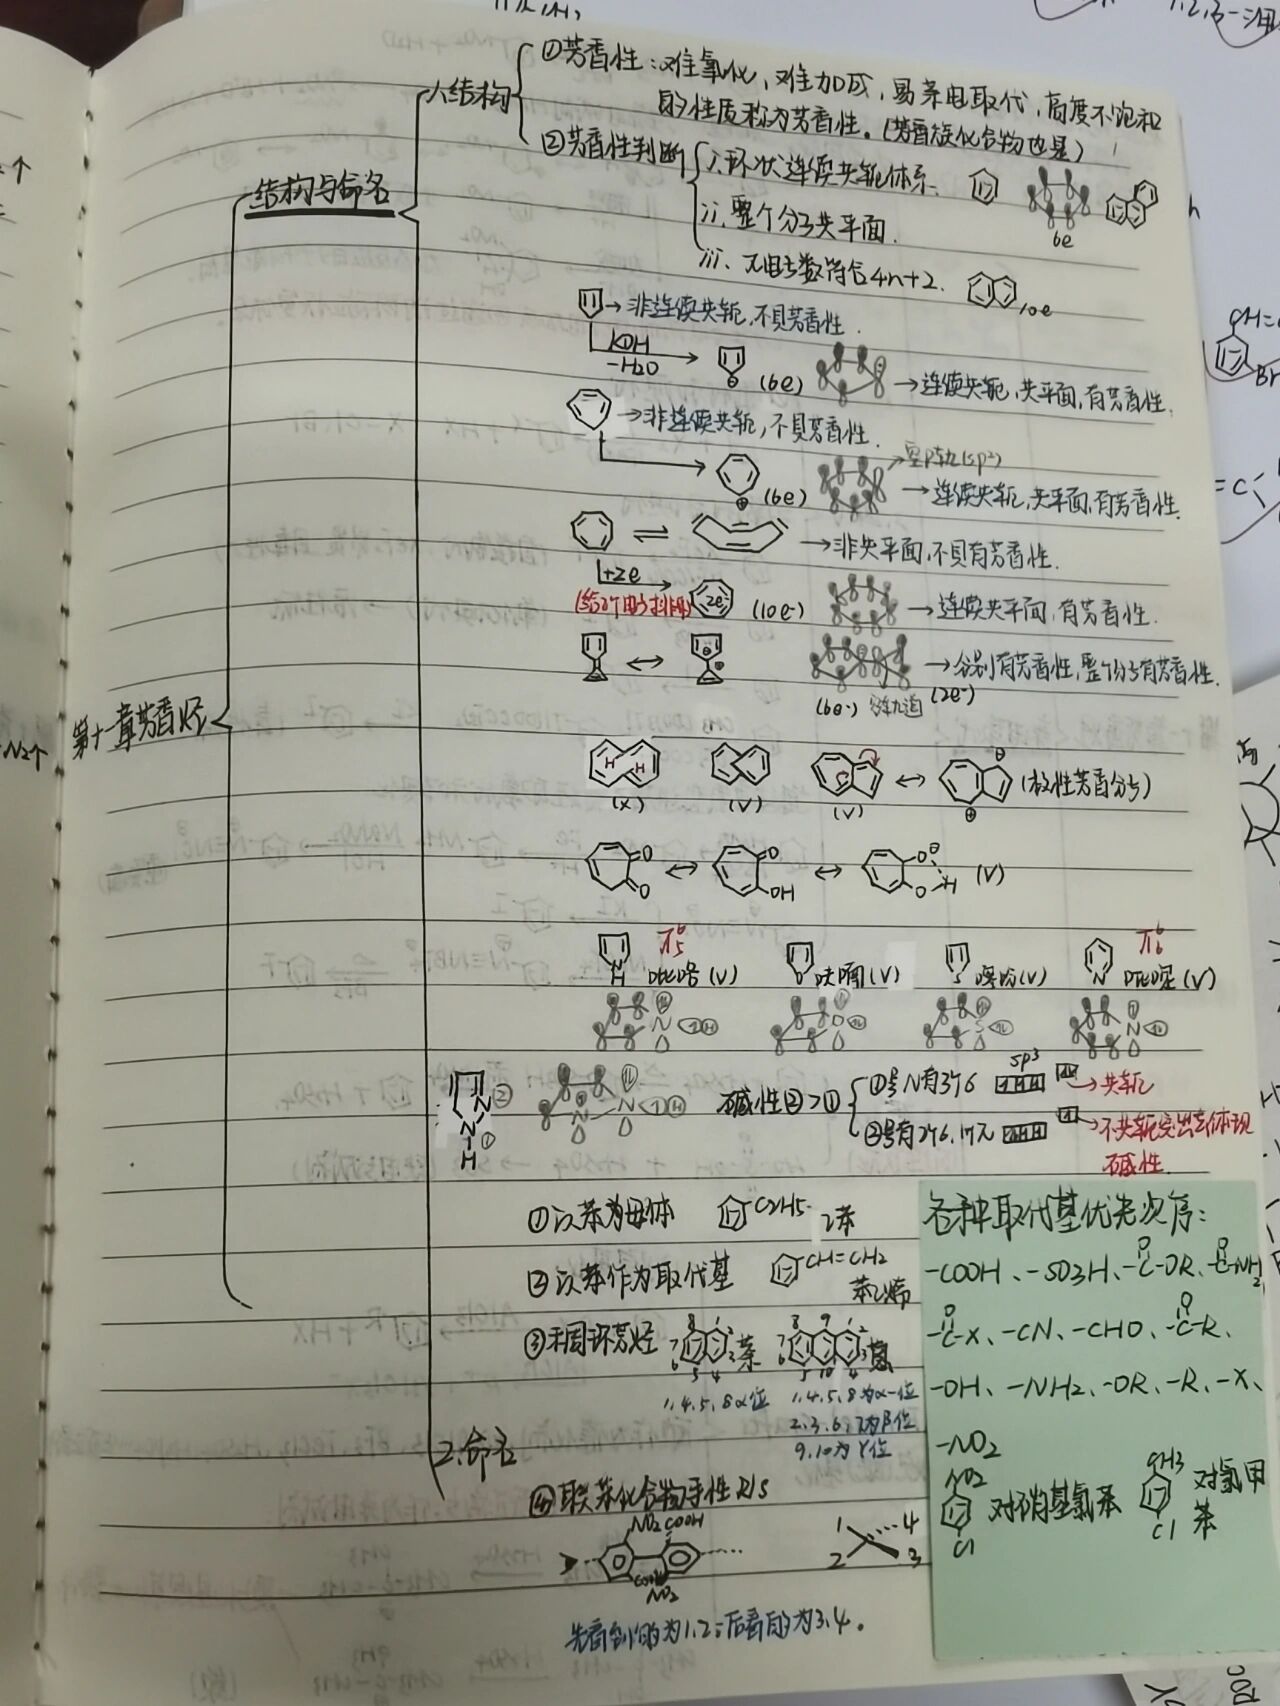 第十一章芳香烃
结构与命名
1.结构
①芳香性:难氧化,难加成,易亲电取代,高度不饱和
的性质称为芳香性。(芳香族化合物也是)
②芳香性判断
i.环状连续共轭体系.
6e
ii.整个分子共平面.
iii.π电子数符合4n+2.
10e
→非连续共轭,不具芳香性.
KOH
-H2O
(6e)
→连续共轭,共平面,有芳香性.
→非连续共轭,不具芳香性.
→空P轨(sp²)
(6e)
→连续共轭,共平面,有芳香性.
→非共平面,不具有芳香性.
+2e
2e⁻
(10e⁻)
→连续共平面,有芳香性.
→分别有芳香性,整个分子有芳香性.
(6e⁻)
(2e⁻)
H H
(X)
(V)
(V)
(极性芳香分子)
O
O
O
OH
O
O
H
(V)
N
H
吡咯(V)
O
呋喃(V)
S
噻吩(V)
N
吡啶(V)
N
②
N
①
H
碱性②>①
①号N有3个σ
sp³
→共轭
②号有2个σ.1个π
→不共轭突出立体现
碱性.
2.命名
①以苯为母体
C2H5
乙苯
②以苯作为取代基
CH=CH2
苯乙烯
③稠环芳烃
8 1 2 3 4 5 6 7
萘
8 9 1 2 3 4 10 5 6 7
蒽
1,4,5,8α位
1,4,5,8为α-位
2.3.6.7为β位
9,10为γ位
④联苯化合物手性R/S
NO2 COOH
COOH
NO2
1 4
2 3
先看到的为1.2;后看的为3.4。
各种取代基优先次序:
-COOH、-SO3H、-C(O)-OR、-C(O)-NH2
-C(O)-X、-CN、-CHO、-C(O)-R、
-OH、-NH2、-OR、-R、-X、
-NO2
NO2
Cl
对硝基氯苯
CH3
Cl
对氯甲
苯
Br